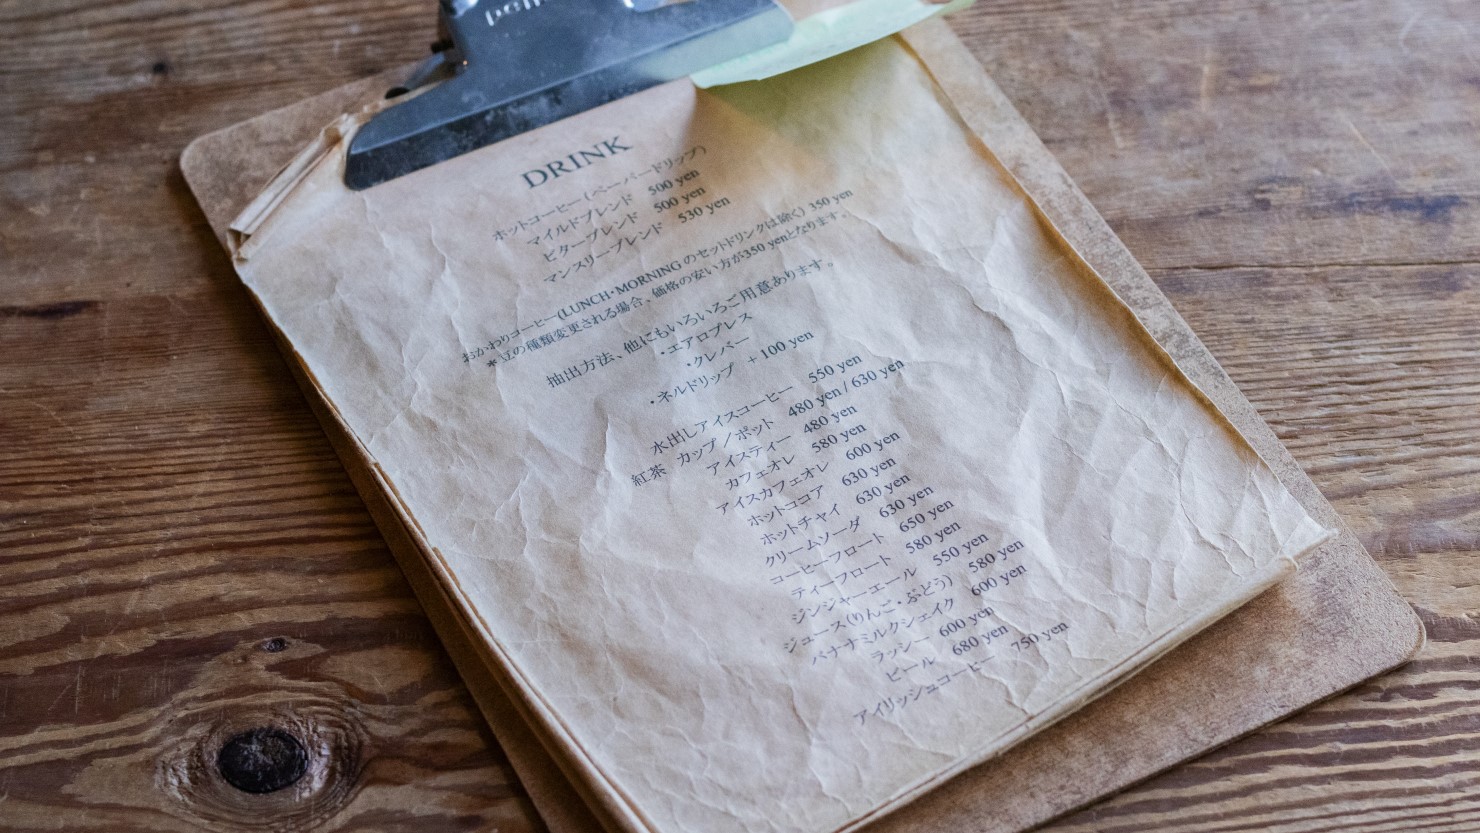 DRINK
ホットコーヒー(ペーパードリップ)
マイルドブレンド 500 yen
ビターブレンド 500 yen
マンスリーブレンド 530 yen
おかわりコーヒー(LUNCH・MORNING のセットドリンクは除く) 350 yen
*豆の種類変更される場合、価格の安い方が350 yenとなります。
抽出方法、他にもいろいろご用意あります。
・エアロプレス
・クレバー
・ネルドリップ +100 yen
水出しアイスコーヒー 550 yen
紅茶 カップ / ポット 480 yen / 630 yen
アイスティー 480 yen
カフェオレ 580 yen
アイスカフェオレ 600 yen
ホットココア 630 yen
ホットチャイ 630 yen
クリームソーダ 630 yen
コーヒーフロート 650 yen
ティーフロート 580 yen
ジンジャーエール 550 yen
ジュース(りんご・ぶどう) 580 yen
バナナミルクシェイク 600 yen
ラッシー 600 yen
ビール 680 yen
アイリッシュコーヒー 750 yen